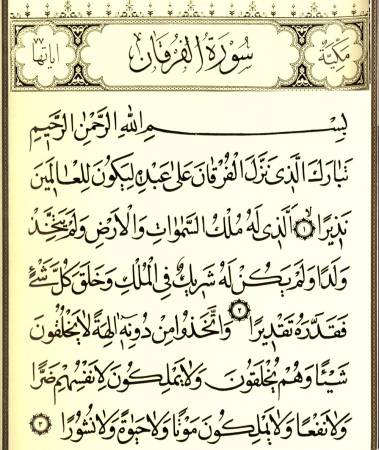 مكية سورة الفرقان آياتها ٧٧
بِسْمِ اللهِ الرَّحْمٰنِ الرَّحِيمِ
تَبَارَكَ الَّذِي نَزَّلَ الْفُرْقَانَ عَلَى عَبْدِهِ لِيَكُونَ لِلْعَالَمِينَ
نَذِيرًا ١ اَلَّذِي لَهُ مُلْكُ السَّمٰوَاتِ وَالْاَرْضِ وَلَمْ يَتَّخِذْ
وَلَدًا وَلَمْ يَكُنْ لَهُ شَرِيكٌ فِي الْمُلْكِ وَخَلَقَ كُلَّ شَيْءٍ
فَقَدَّرَهُ تَقْدِيرًا ٢ وَاتَّخَذُوا مِنْ دُونِهِ اٰلِهَةً لَا يَخْلُقُونَ
شَيْئًا وَهُمْ يُخْلَقُونَ وَلَا يَمْلِكُونَ لِاَنْفُسِهِمْ ضَرًّا
وَلَا نَفْعًا وَلَا يَمْلِكُونَ مَوْتًا وَلَا حَيٰوةً وَلَا نُشُورًا ٣